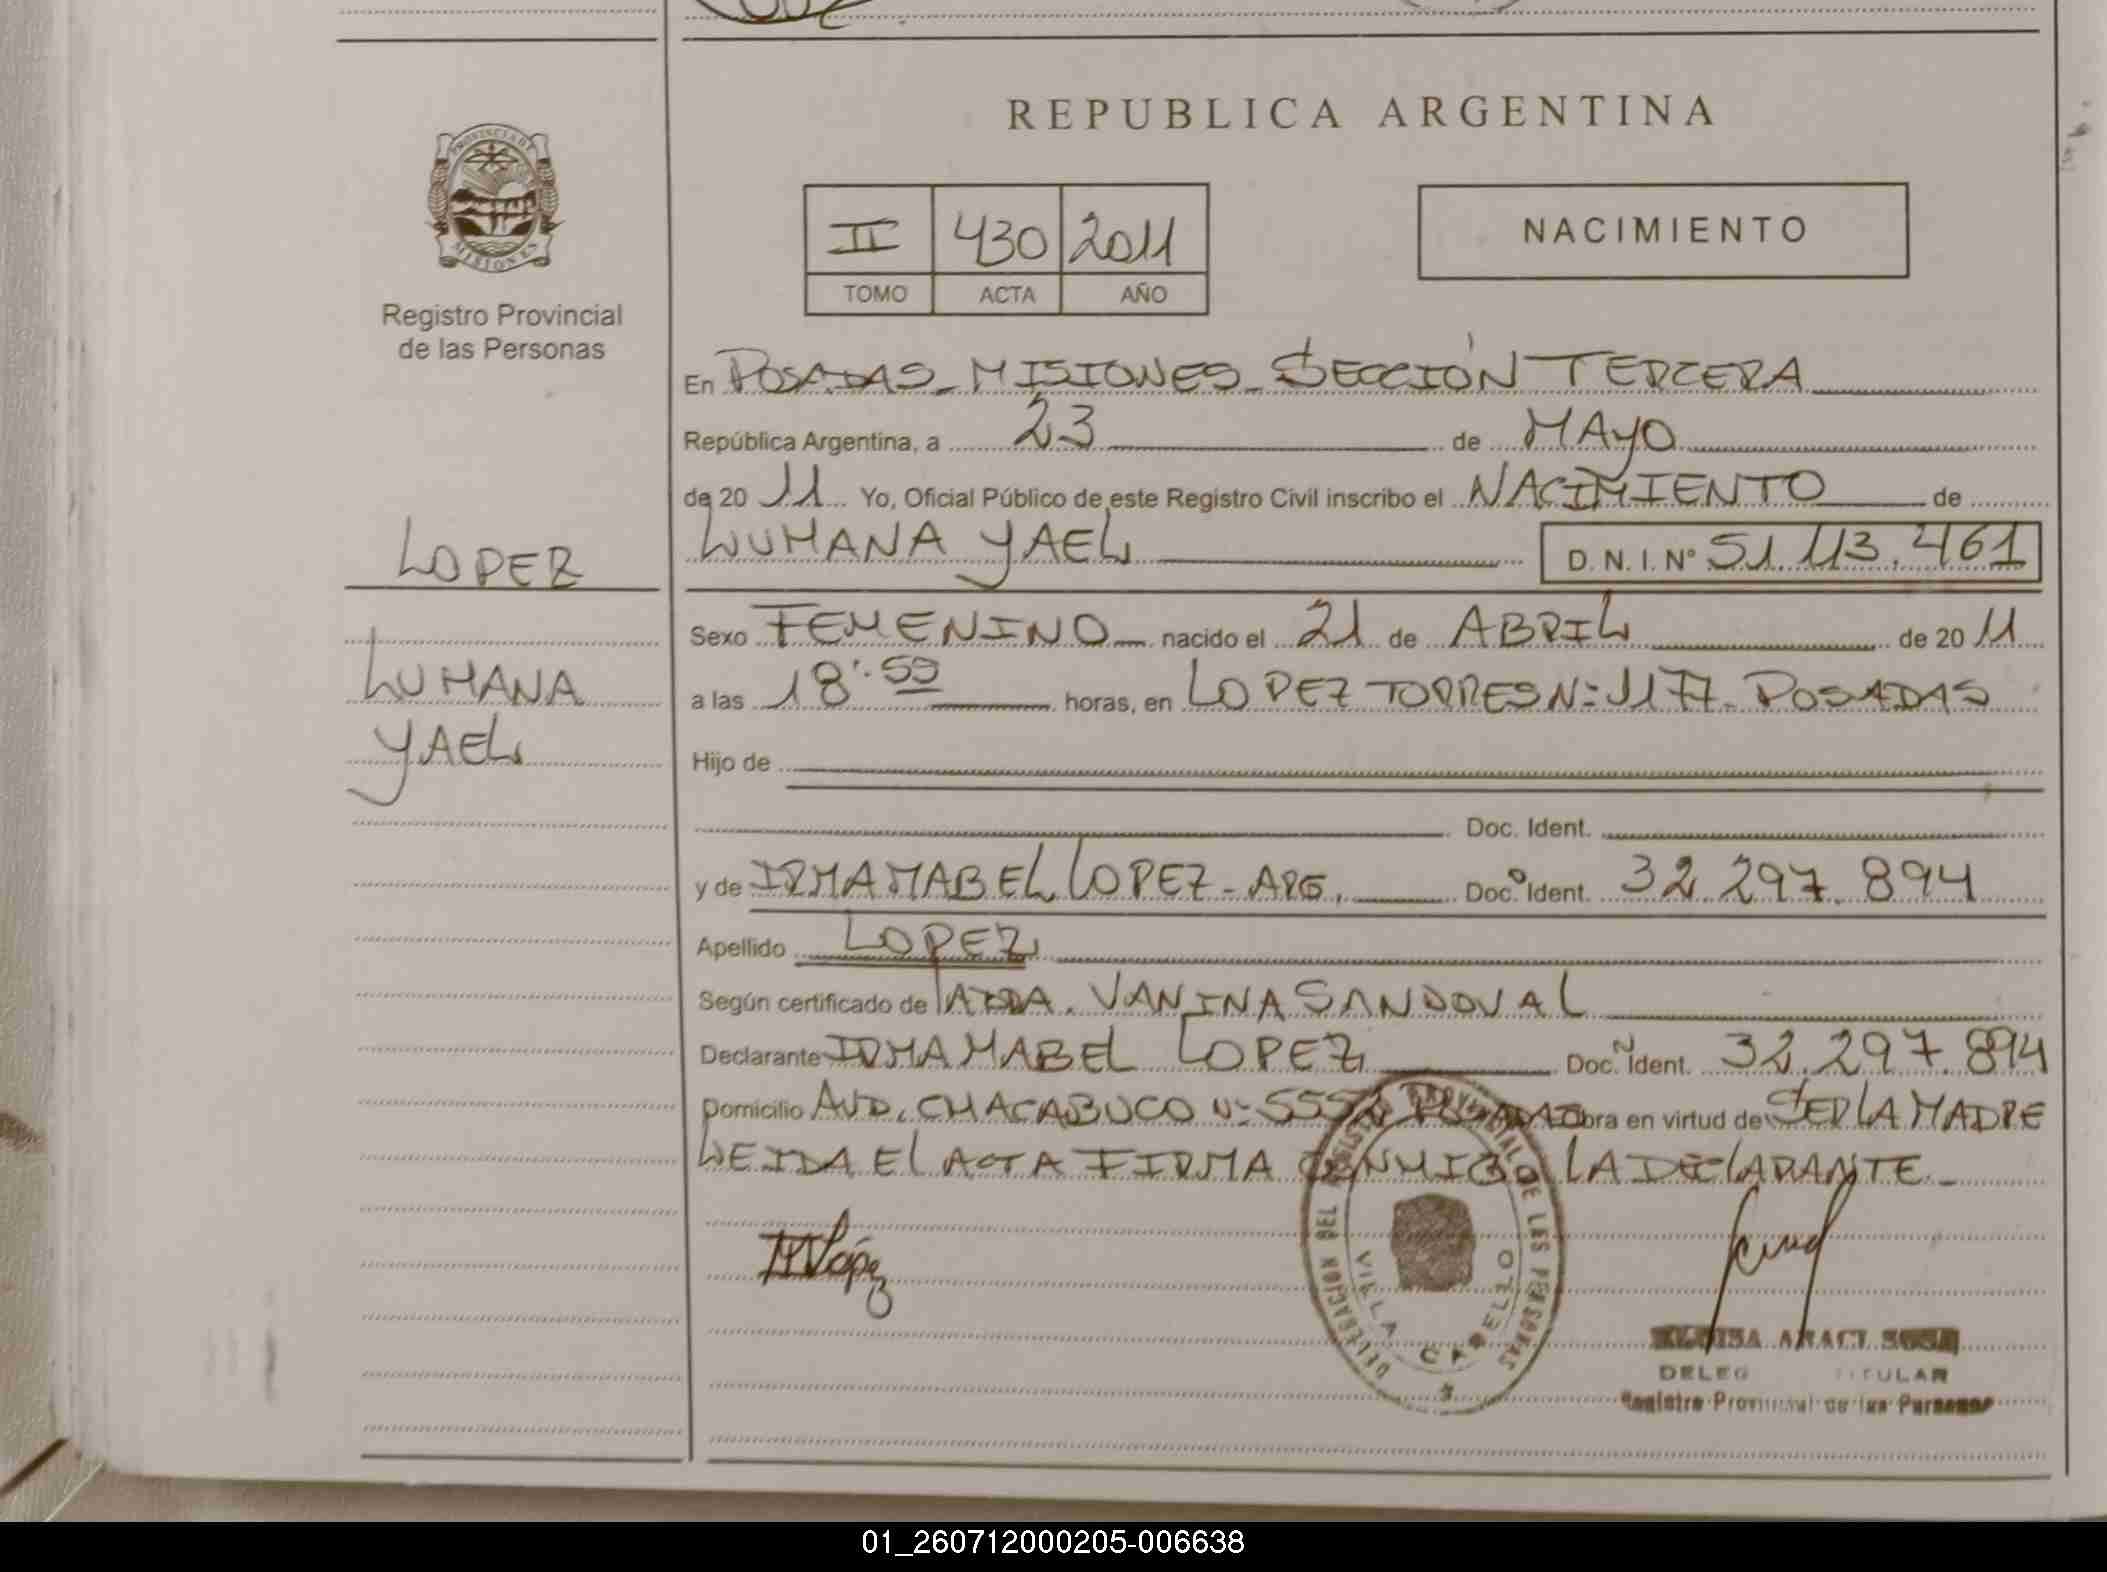 REPUBLICA ARGENTINA
PROVINCIA DE MISIONES
Registro Provincial
de las Personas
II 430 2011
TOMO ACTA AÑO
NACIMIENTO
En POSADAS - MISIONES - SECCIÓN TERCERA
República Argentina, a 23 de MAYO
de 20 11 Yo, Oficial Público de este Registro Civil inscribo el NACIMIENTO de
LOPEZ
LUHANA YAEL D. N. I. Nº 51.113.461
Sexo FEMENINO nacido el 21 de ABRIL de 20 11
LUHANA
a las 18:59 horas, en LOPEZ TORRES Nº 1177 - POSADAS
YAEL
Hijo de
Doc. Ident.
y de IRMA MABEL LOPEZ - ARG. Doc. Ident. 32.297.894
Apellido LOPEZ
Según certificado de VANINA SANDOVAL
Declarante IRMA MABEL LOPEZ Doc. Ident. 32.297.894
Domicilio AVD. CHACABUCO Nº POSADAS Obra en virtud de SER LA MADRE
LEIDA EL ACTA FIRMA CONMIGO LA DECLARANTE -
López
DELEGACION DEL REGISTRO PROVINCIAL DE LAS PERSONAS
VILLA CABELLO
ARACI SOSA
DELEG TITULAR
Registro Provincial de las Personas
01_260712000205-006638